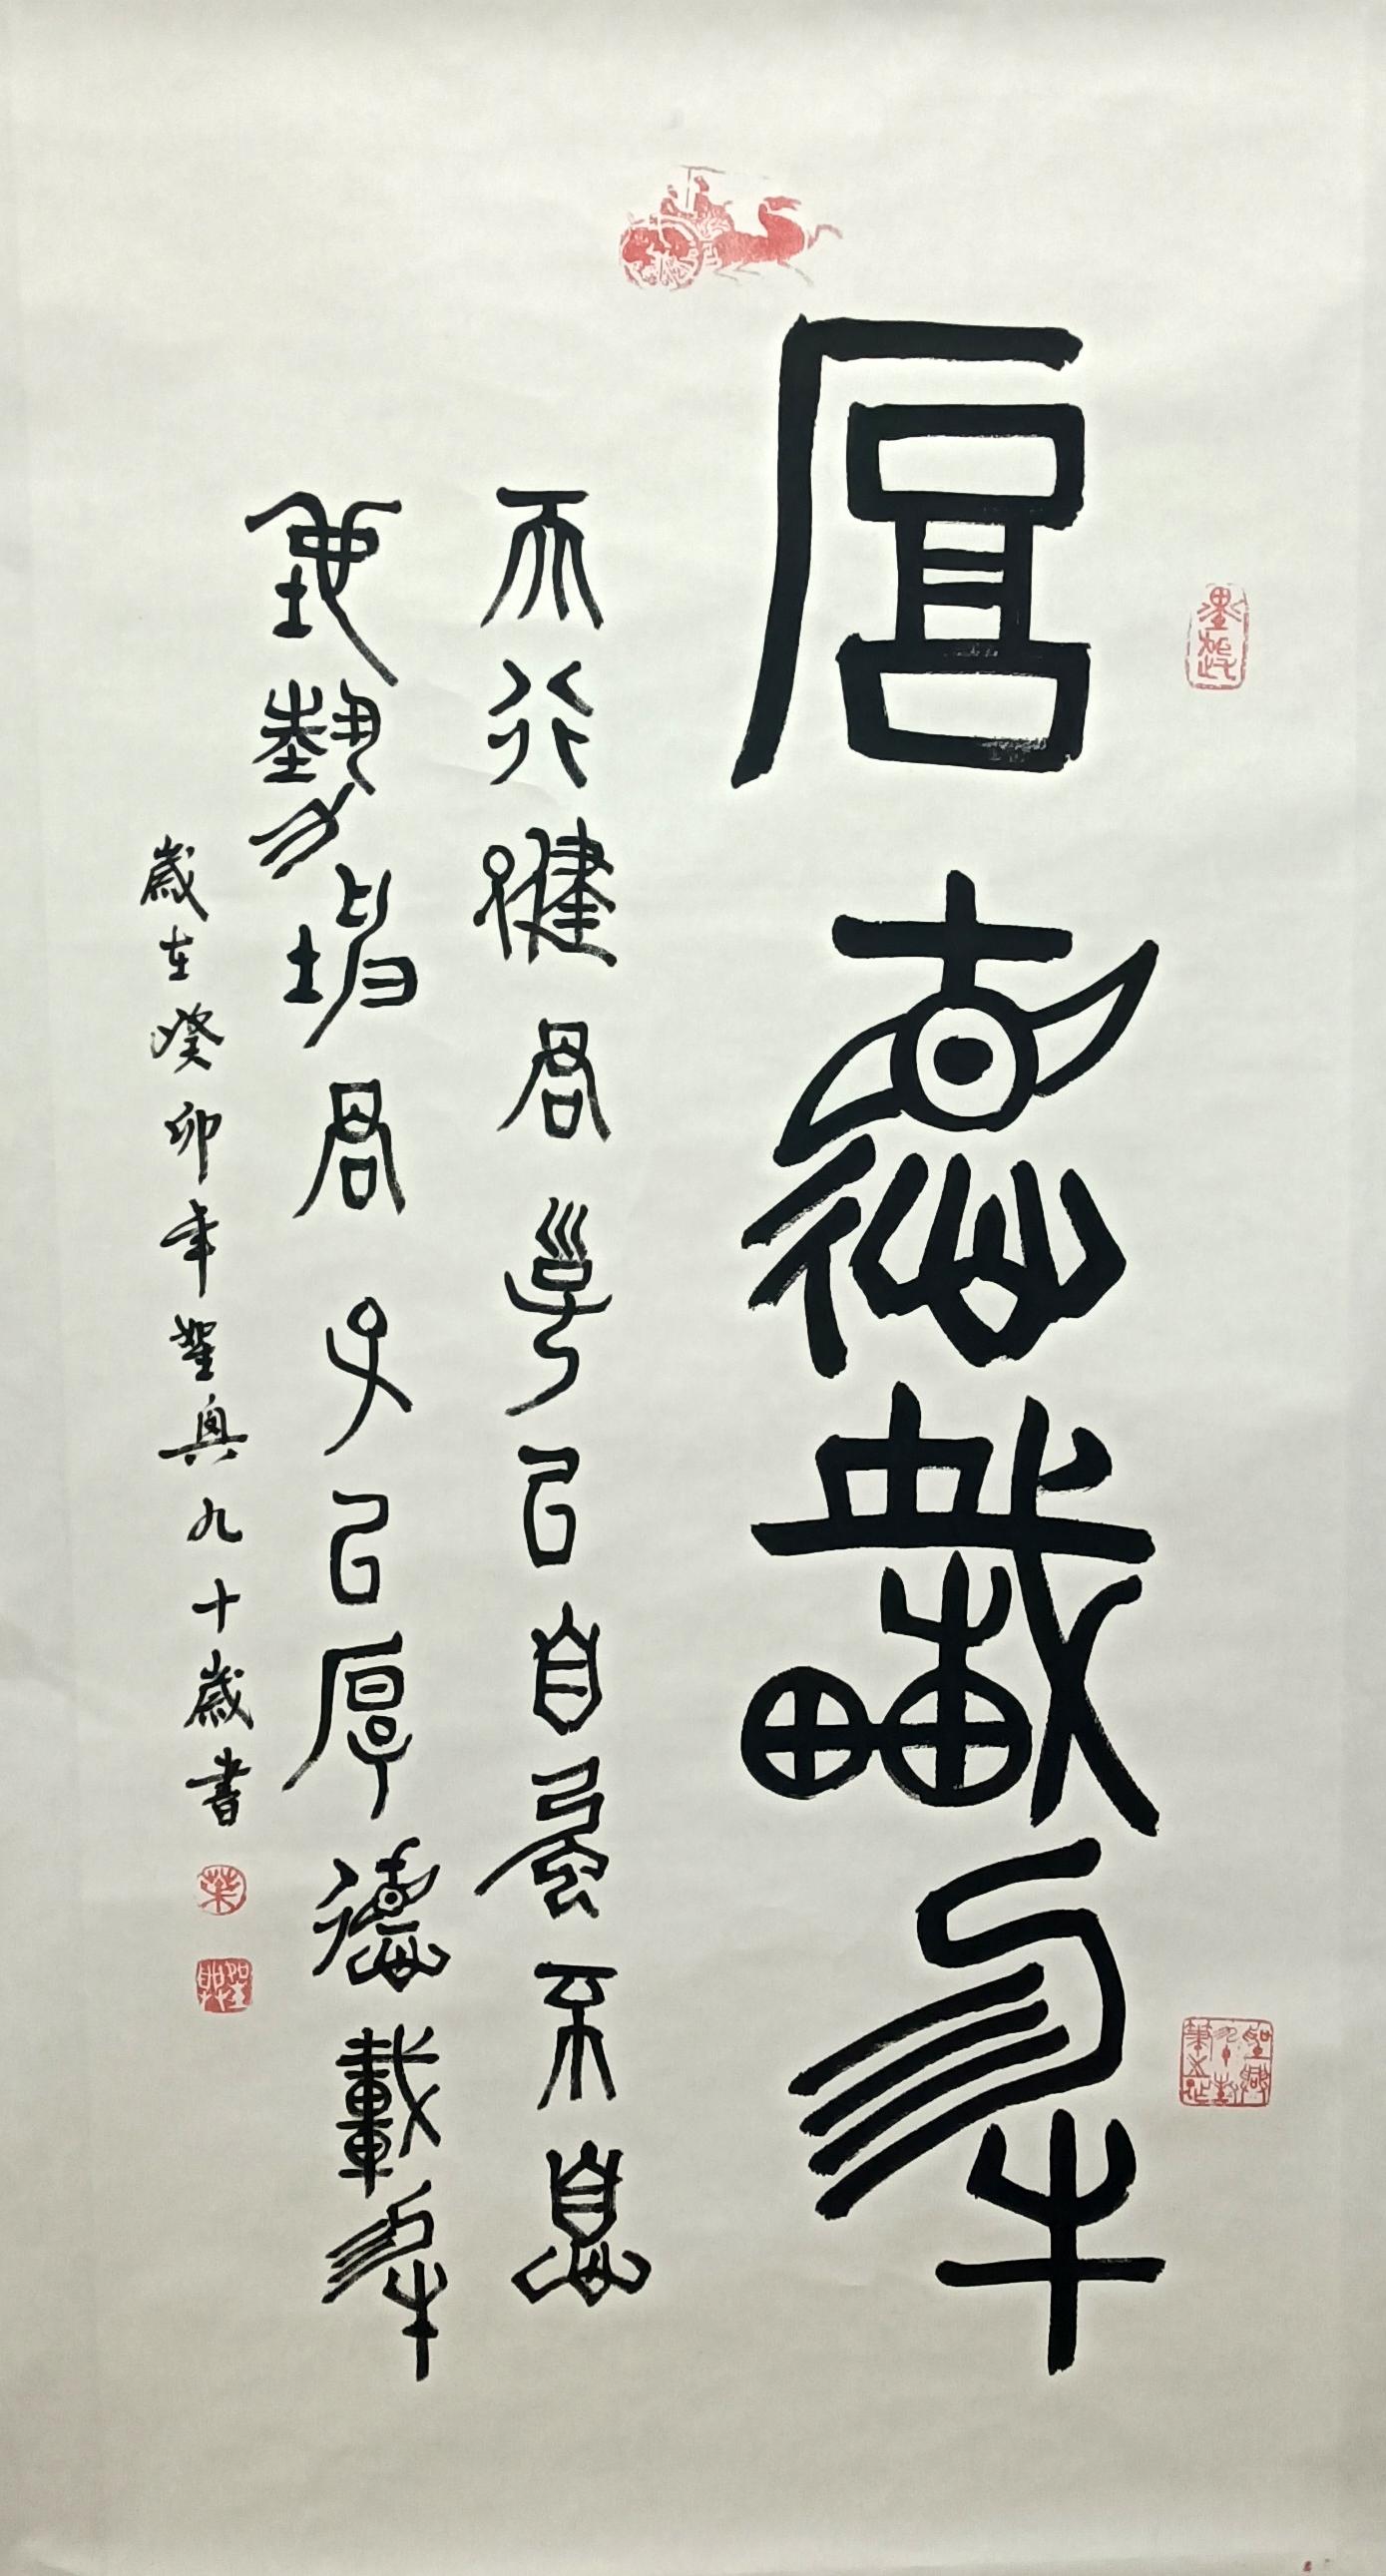 厚德載物
天行健君子以自强不息
地勢坤君子以厚德載物
歲在癸卯年聖興九十歲書